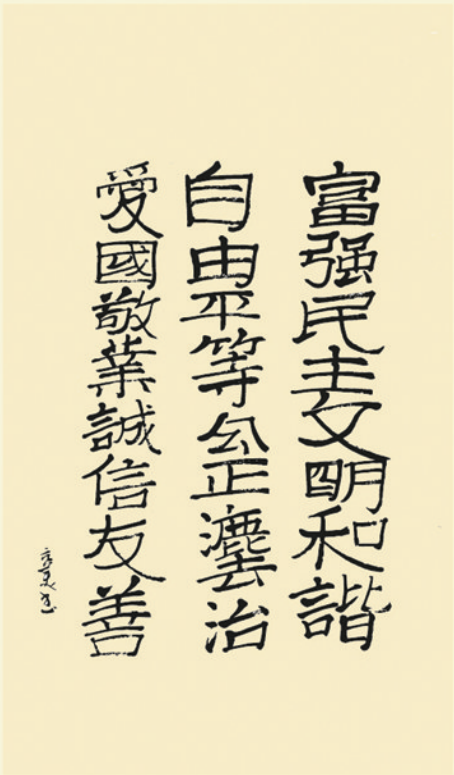 富强民主文明和諧
自由平等公正灋治
愛國敬業誠信友善